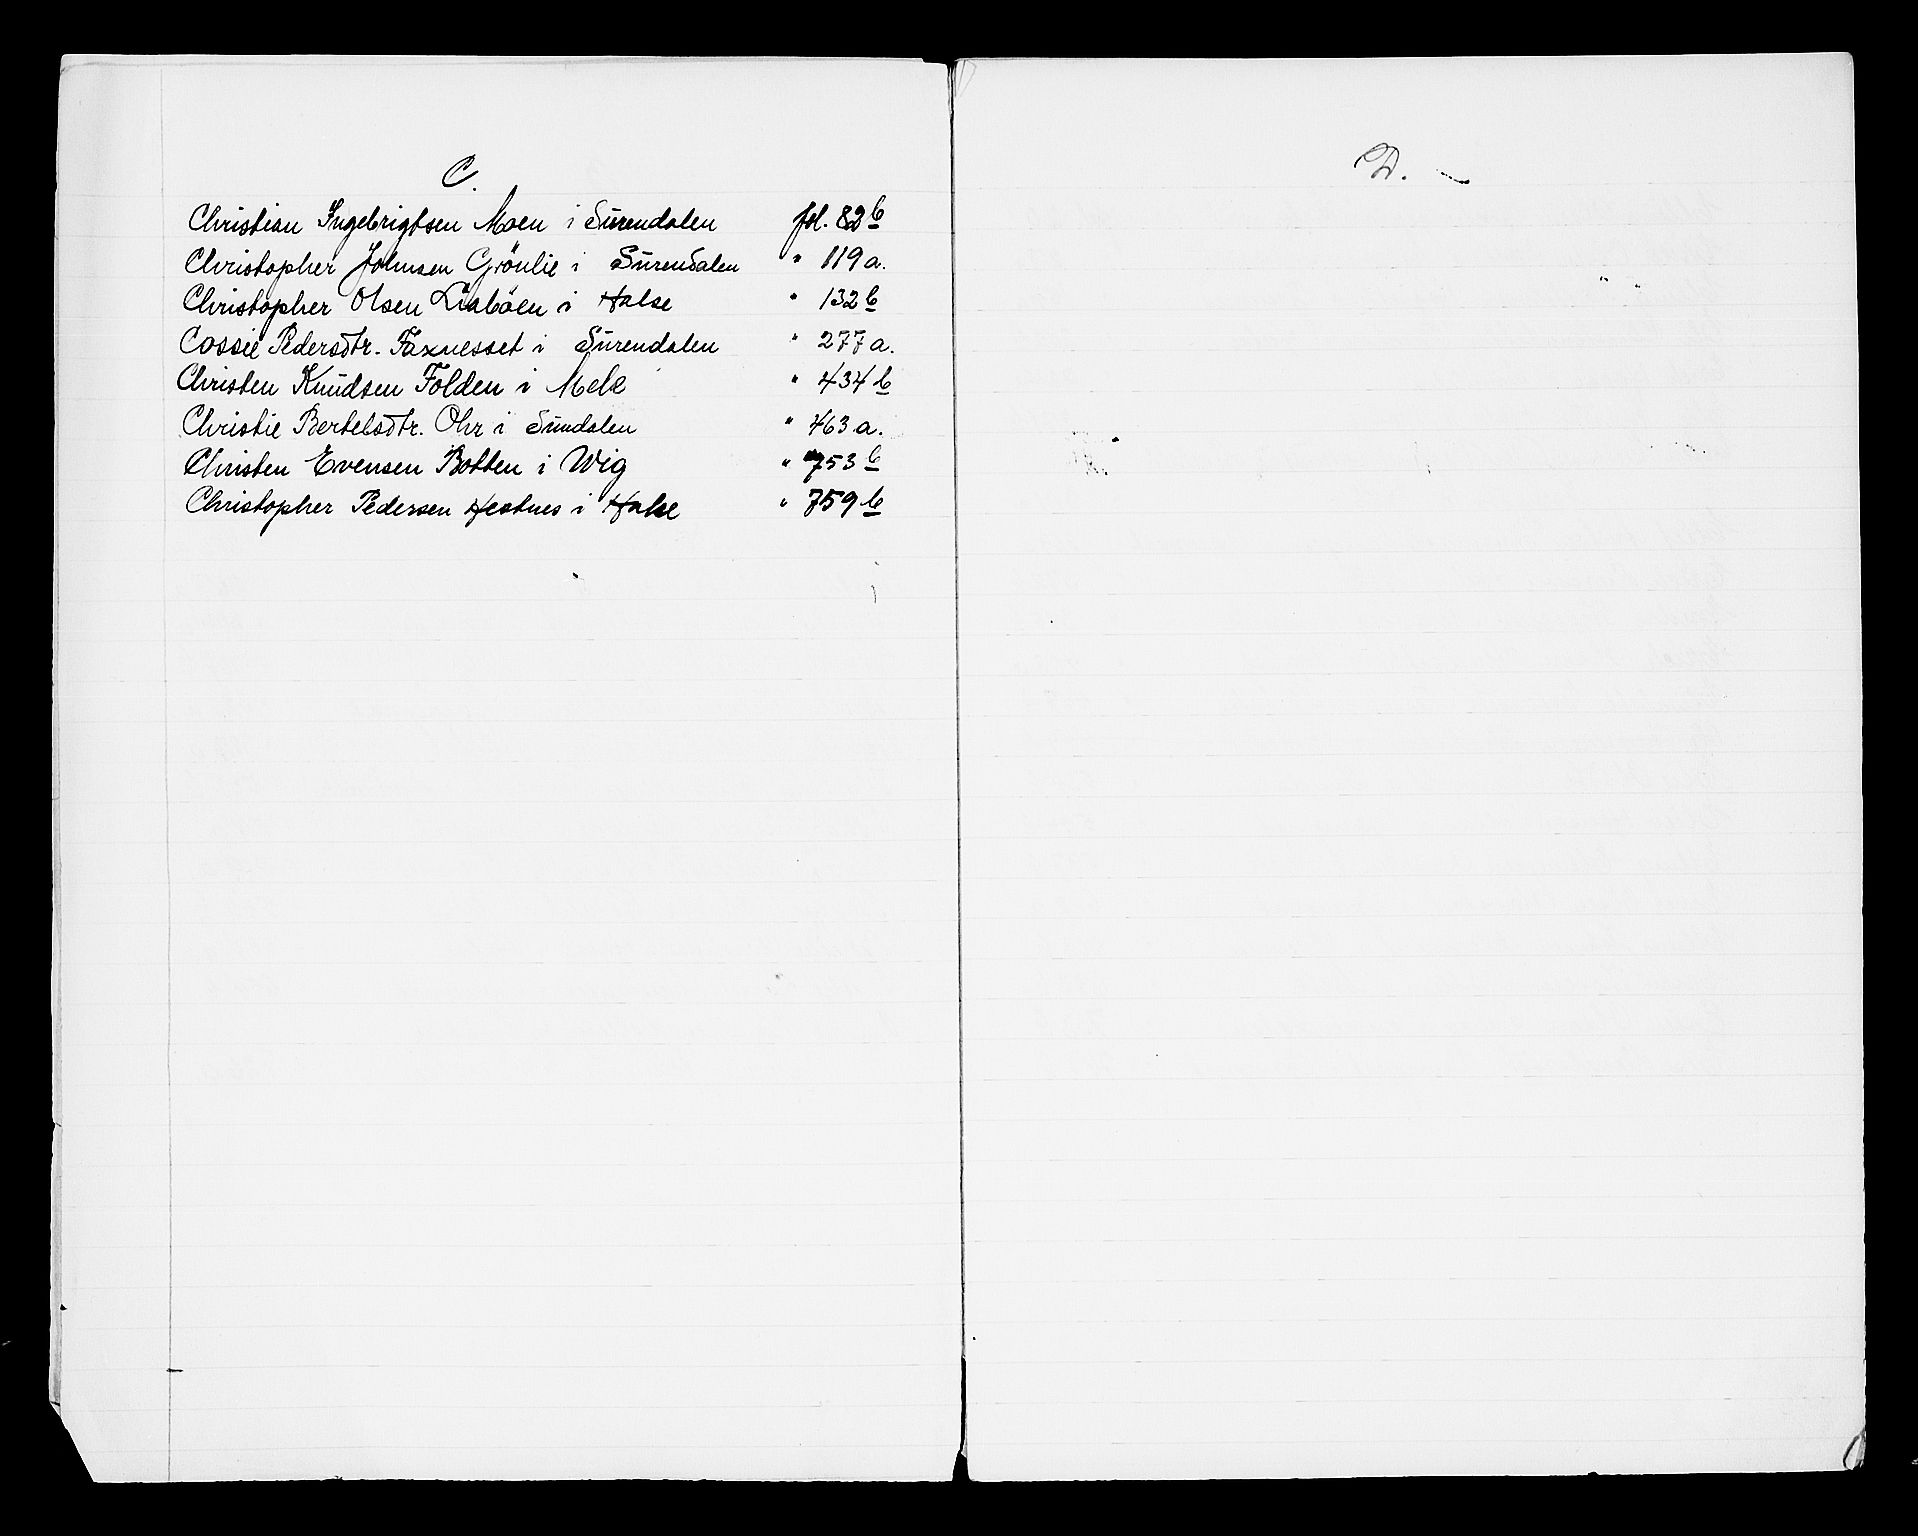 C.
Christian Ingebrigtsen Moen i Surendalen fol. 82 b
Christopher Johnsen Grönlie i Surendalen " 119 a.
Christopher Olsen Liaböen i Halse " 132 b
Cossie Pedersdtr. Faxnesset i Surendalen " 277 a.
Christen Knudsen Folden i Mele " 434 b
Christie Bertelsdtr. Ohr i Sundalen " 463 a.
Christen Evensen Botten i Wig " 753 b
Christopher Pedersen Hestnes i Halse " 759 b
D.